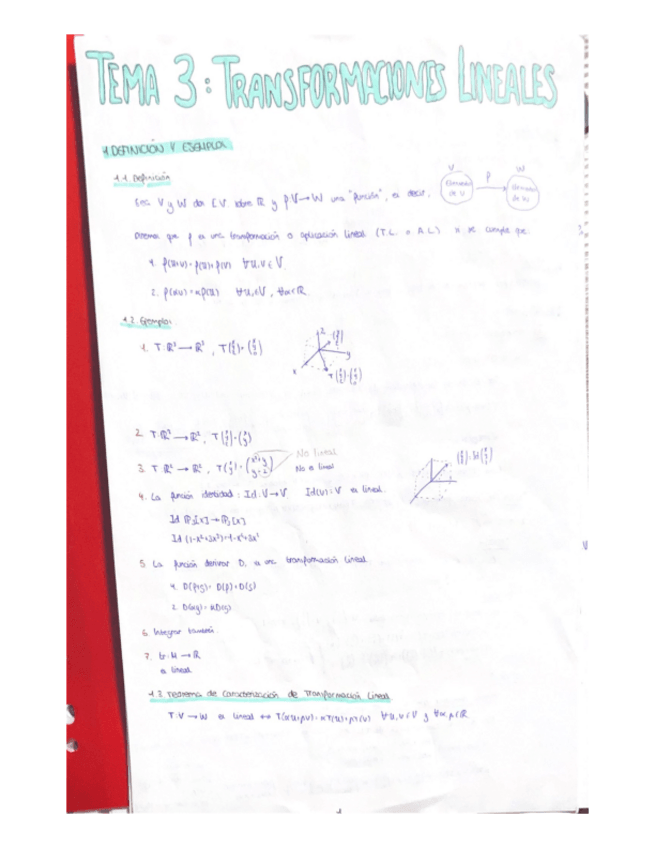 TEMA 3: TRANSFORMACIONES LINEALES
1. DEFINICIÓN Y EJEMPLOS
1.1. Definición
V W
Sea V y W dos E.V. sobre ℝ y f: V → W una "función", es decir,
f
Elementos de V
de W
Diremos que f es una transformación o aplicación lineal (T.L. o A.L.) si se cumple que:
1. f(u+v) = f(u)+f(v) ∀u,v ∈ V
2. f(αu) = αf(u) ∀u ∈ V, ∀α ∈ ℝ
1.2. Ejemplos
1. T: → , T
z
y
x
2. T: ℝ² → ℝ², T
3. T: ℝ² → ℝ², T No lineal
No es lineal
4. La función identidad: Id: V → V Id(v) = V es lineal.
Id
5. La función derivar D, es una transformación lineal.
1. D(f+g) = D(f)+D(g)
2.
6. Integrar también.
7. tr: M → ℝ
es lineal
1.3. Teorema de Caracterización de Transformación Lineal
T: V → W es lineal ↔ T(αu+βv) = αT(u)+βT(v) ∀u,v ∈ V y ∀α,β ∈ ℝ